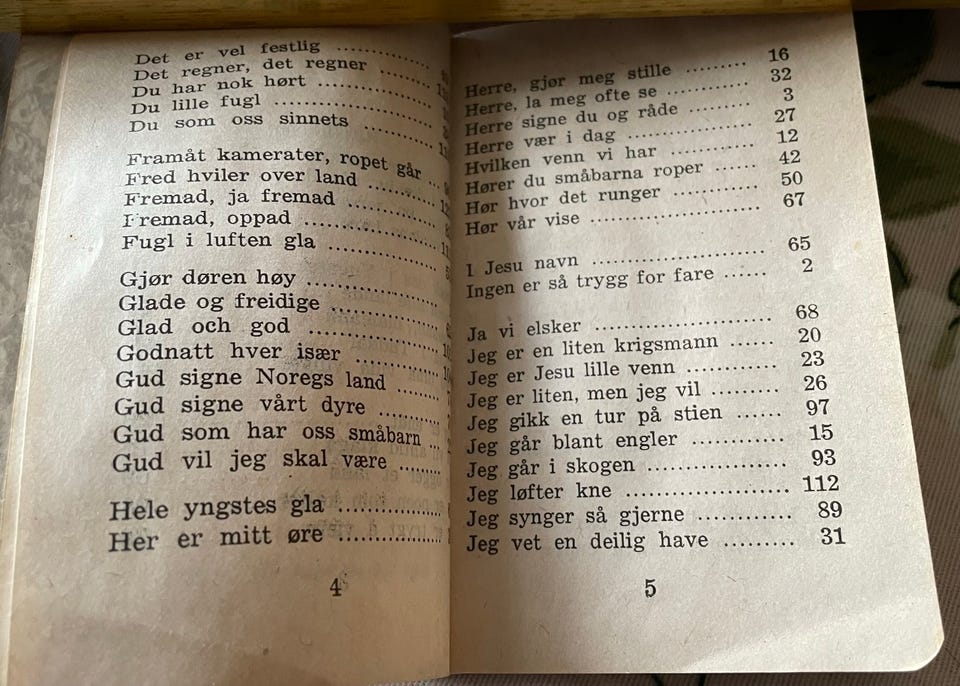 Det er vel festlig ..........
Det regner, det regner ........
Du har nok hørt ............
Du lille fugl .................
Du som oss sinnets ..........
Framåt kamerater, ropet går ...
Fred hviler over land .........
Fremad, ja fremad ............
Fremad, oppad ...............
Fugl i luften gla ..............
Gjør døren høy ..............
Glade og freidige .............
Glad och god ................
Godnatt hver især ...........
Gud signe Noregs land .......
Gud signe vårt dyre .........
Gud som har oss småbarn ...
Gud vil jeg skal være .......
Hele yngstes gla ..............
Her er mitt øre .................
4
Herre, gjør meg stille ......... 16
Herre, la meg ofte se ............ 32
Herre signe du og råde ......... 3
Herre vær i dag ................ 27
Hvilken venn vi har ............ 12
Hører du småbarna roper ...... 42
Hør hvor det runger ............ 50
Hør vår vise ..................... 67
I Jesu navn ..................... 65
Ingen er så trygg for fare ...... 2
Ja vi elsker ..................... 68
Jeg er en liten krigsmann ...... 20
Jeg er Jesu lille venn ............ 23
Jeg er liten, men jeg vil ......... 26
Jeg gikk en tur på stien ...... 97
Jeg går blant engler ............ 15
Jeg går i skogen .................. 93
Jeg løfter kne ..................... 112
Jeg synger så gjerne ............ 89
Jeg vet en deilig have ......... 31
5